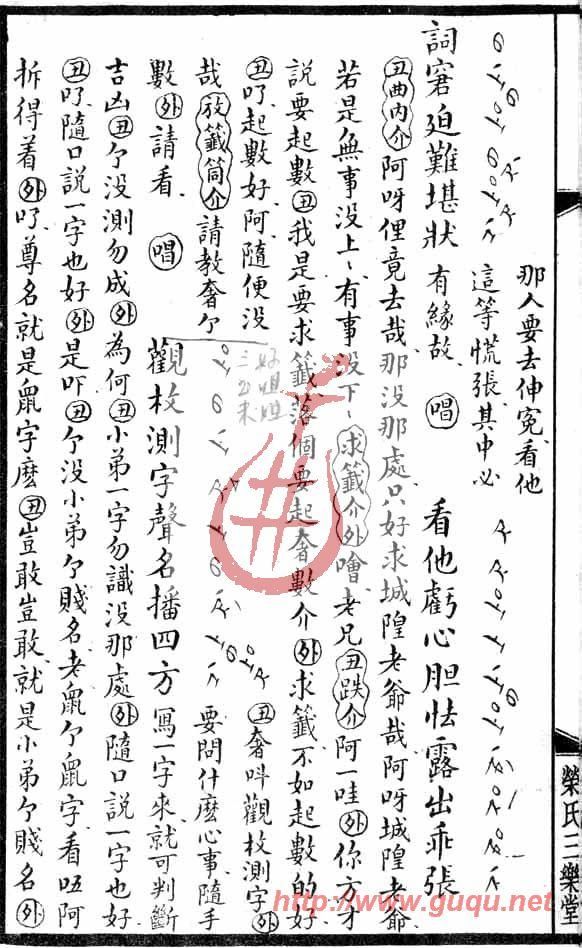 那人要去伸冤看他
這等慌張其中必
詞窘迫難堪狀 有緣故 唱 看他虧心胆怯露出乖張
丑曲内介 阿呀俚竟去哉那没那處只好求城隍老爺哉阿呀城隍老爺
若是無事没上ヽ有事没下ヽ 求籤介 外 噲老兄 丑跌介 阿一哇 外 你方才
說要起數 丑 我是要求籤落個要起奢數介 外 求籤不如起數的好
丑 吖起數好阿隨便没 丑 奢呌觀枚測字 外
哉 放籤筒介 請教奢个 要問什麽心事隨手
數 外 請看 唱 觀枚測字聲名播四方 寫一字來就可判斷
吉凶 丑 个没測勿成 外 為何 丑 小弟一字勿識没那處 外 隨口說一字也好
丑 吖隨口說一字也好 外 是吓 丑 个没小弟个賤名老鼠个鼠字看㕶阿
拆得着 外 吖尊名就是鼠字麽 丑 豈敢豈敢就是小弟个賤名 外
榮氏三樂堂
http://www.guqu.net